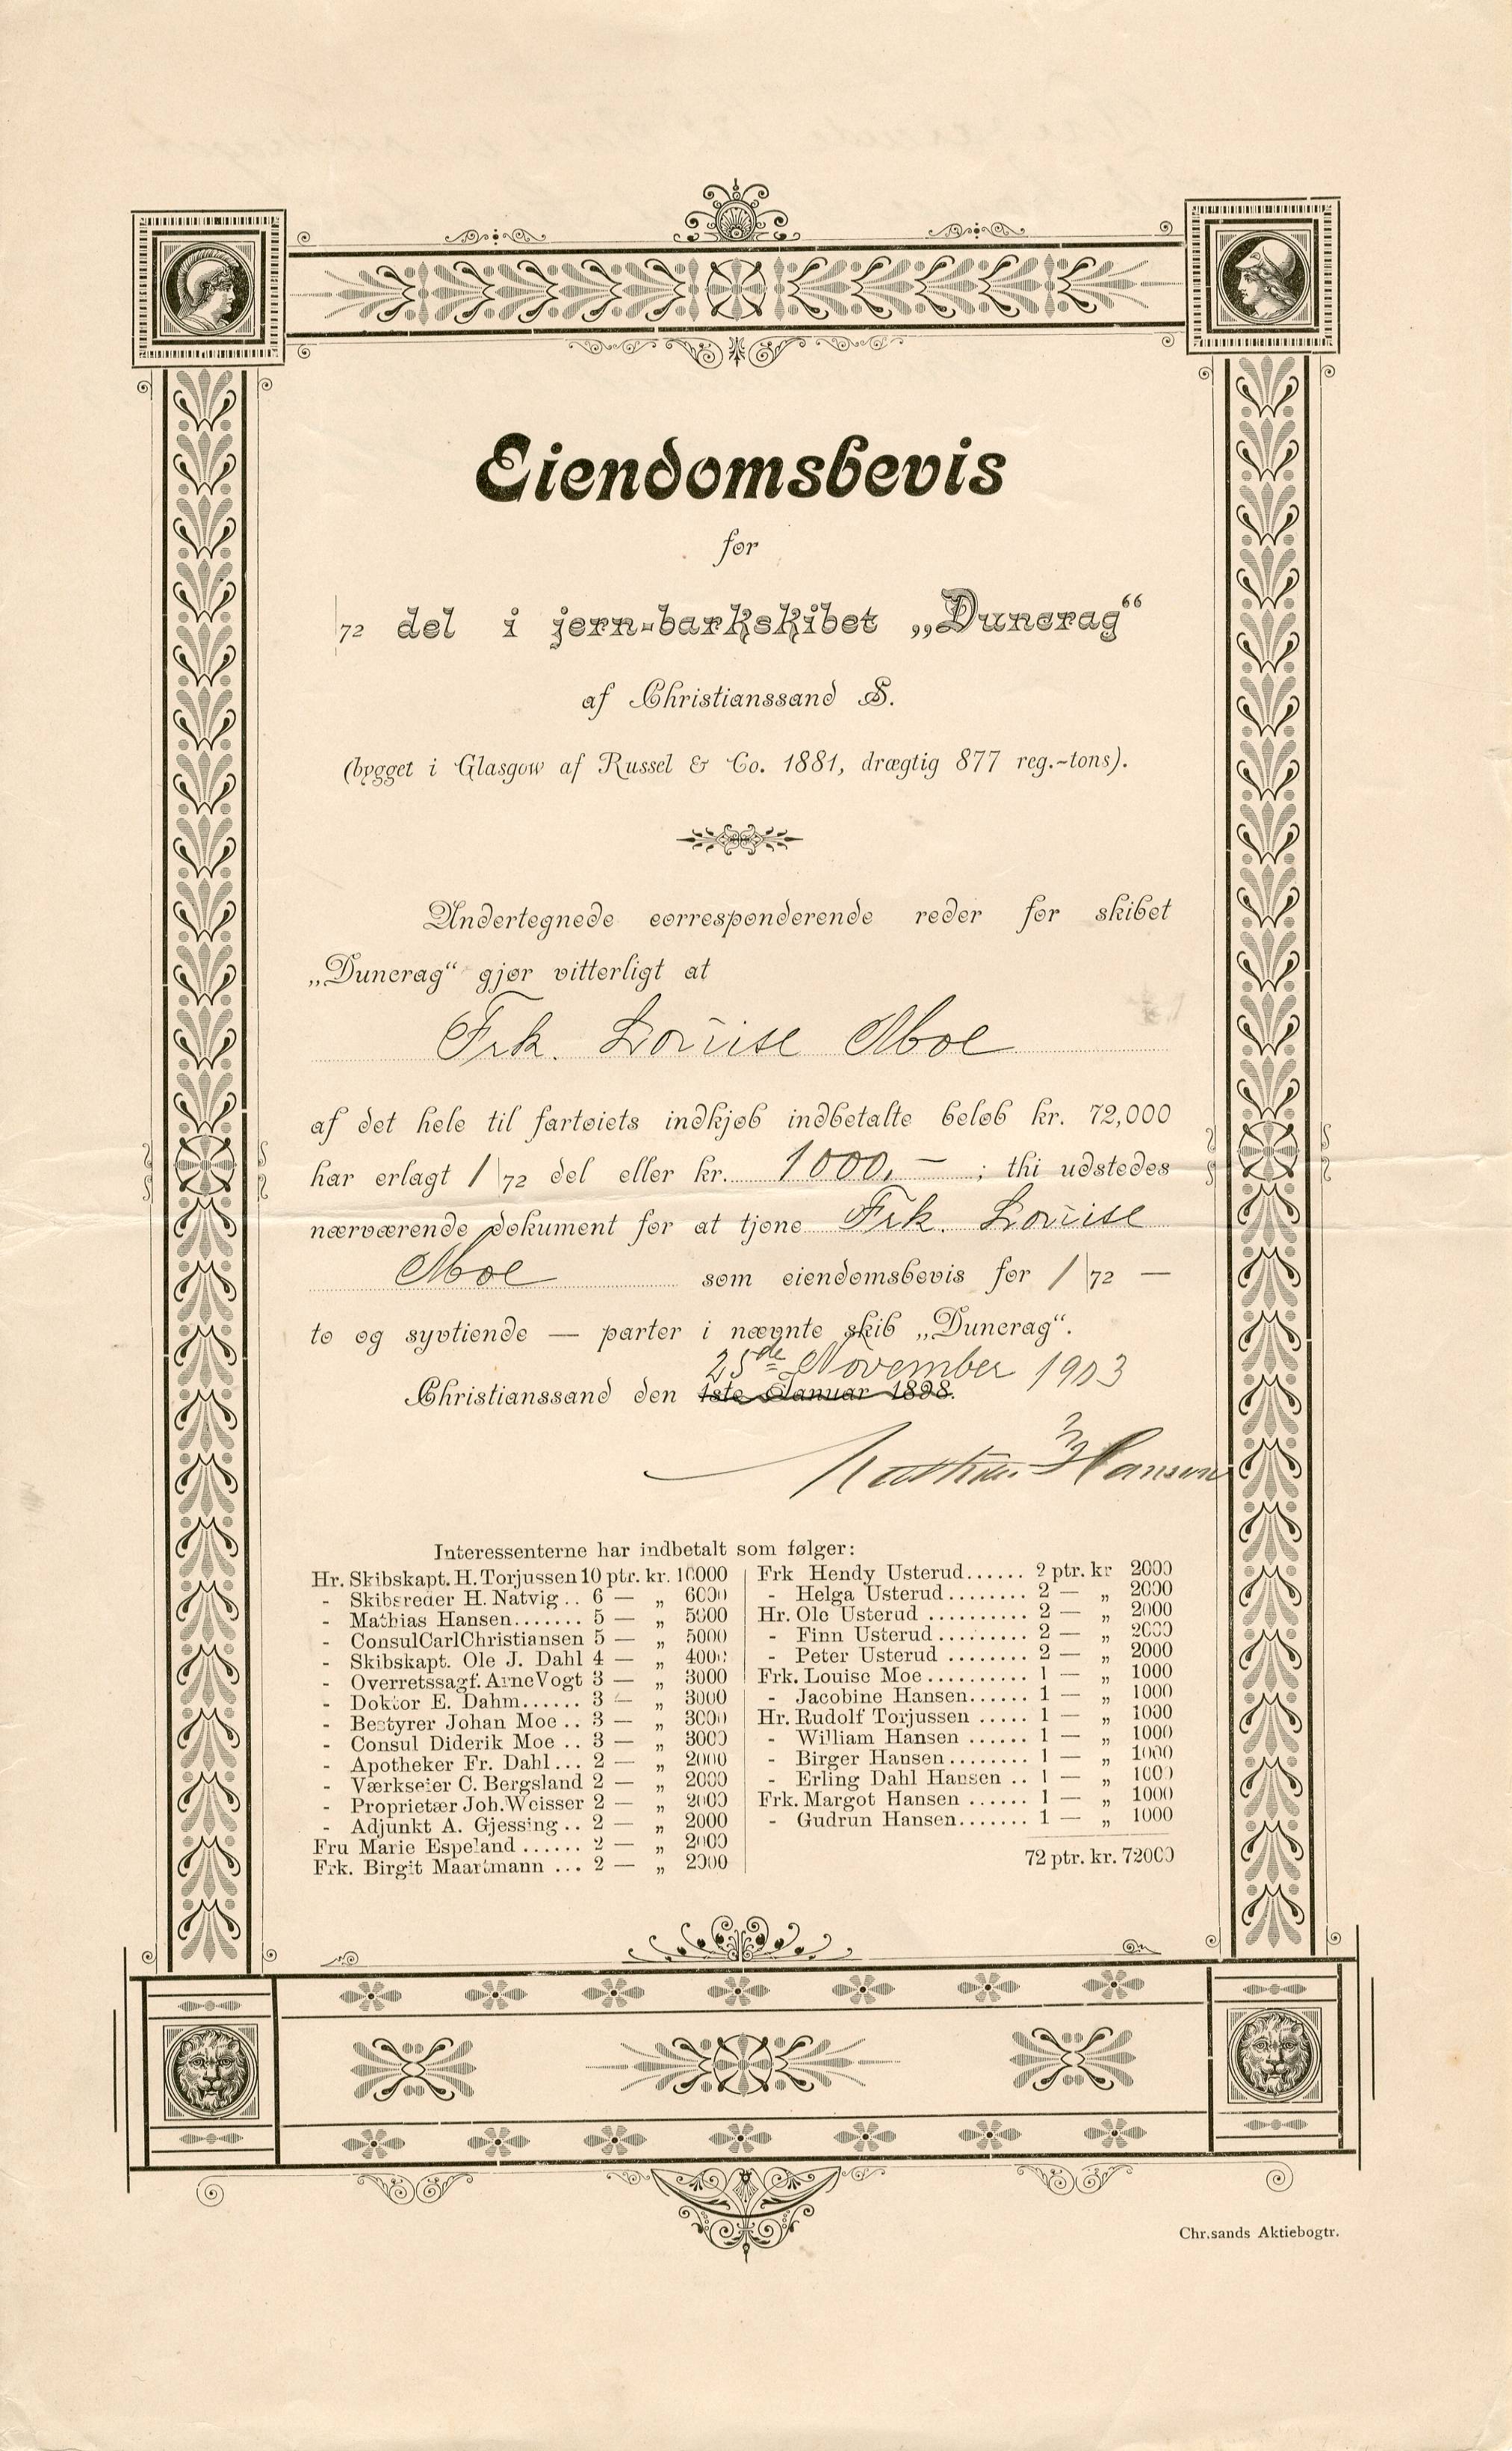 Eiendomsbevis
for
/72 del i jern-barkskibet „Duncrag“
af Christianssand S.
(bygget i Glasgow af Russel & Co. 1881, drægtig 877 reg.-tons).
Undertegnede corresponderende reder for skibet
„Duncrag“ gjør vitterligt at
Frk. Louise Moe
af det hele til fartøiets indkjøb indbetalte beløb kr. 72,000
har erlagt 1/72 del eller kr. 1000,— ; thi udstedes
nærværende dokument for at tjene Frk. Louise
Moe som eiendomsbevis for 1/72 —
to og syvtiende — parter i nævnte skib „Duncrag“.
25de November 1903
Christianssand den 1ste Januar 1898.
Mathias Hansen
Interessenterne har indbetalt som følger:
Hr. Skibskapt. H. Torjussen 10 ptr. kr. 10000
- Skibsreder H. Natvig .. 6 — „ 6000
- Mathias Hansen ....... 5 — „ 5000
- Consul Carl Christiansen 5 — „ 5000
- Skibskapt. Ole J. Dahl 4 — „ 4000
- Overretssagf. Arne Vogt 3 — „ 3000
- Doktor E. Dahm...... 3 — „ 3000
- Bestyrer Johan Moe .. 3 — „ 3000
- Consul Diderik Moe .. 3 — „ 3000
- Apotheker Fr. Dahl... 2 — „ 2000
- Værkseier C. Bergsland 2 — „ 2000
- Proprietær Joh. Weisser 2 — „ 2000
- Adjunkt A. Gjessing .. 2 — „ 2000
Fru Marie Espeland ...... 2 — „ 2000
Frk. Birgit Maartmann ... 2 — „ 2000
Frk Hendy Usterud...... 2 ptr. kr 2000
- Helga Usterud........ 2 — „ 2000
Hr. Ole Usterud .......... 2 — „ 2000
- Finn Usterud ......... 2 — „ 2000
- Peter Usterud ........ 2 — „ 2000
Frk. Louise Moe .......... 1 — „ 1000
- Jacobine Hansen...... 1 — „ 1000
Hr. Rudolf Torjussen ..... 1 — „ 1000
- William Hansen ...... 1 — „ 1000
- Birger Hansen ........ 1 — „ 1000
- Erling Dahl Hansen .. 1 — „ 1000
Frk. Margot Hansen ...... 1 — „ 1000
- Gudrun Hansen....... 1 — „ 1000
72 ptr. kr. 72000
Chr.sands Aktiebogtr.